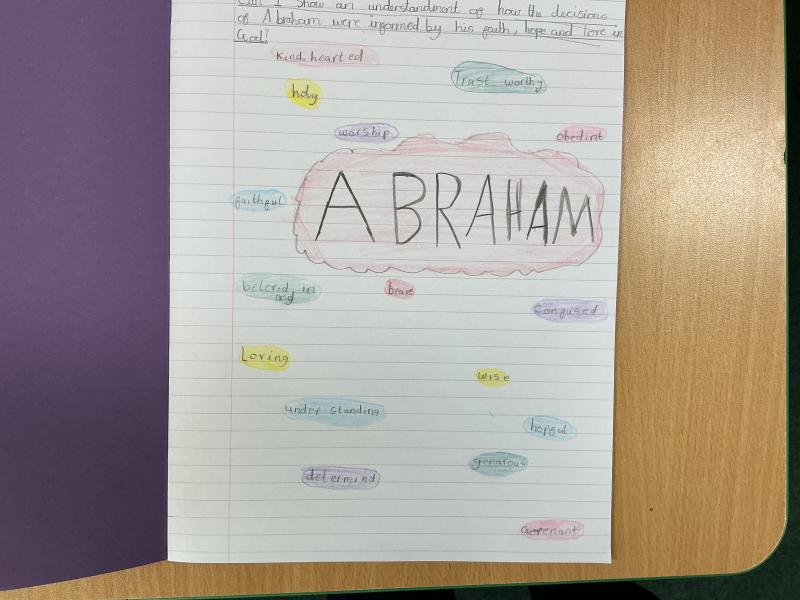 Can I show an understandment of how the decisions
of Abraham were informed by his faith, hope and love in
God?
Kind hearted
Trust worthy
holy
worship
obedint
ABRAHAM
faithful
belevid in
god
brave
Confused
Loving
wise
under standing
hopeful
genarous
determind